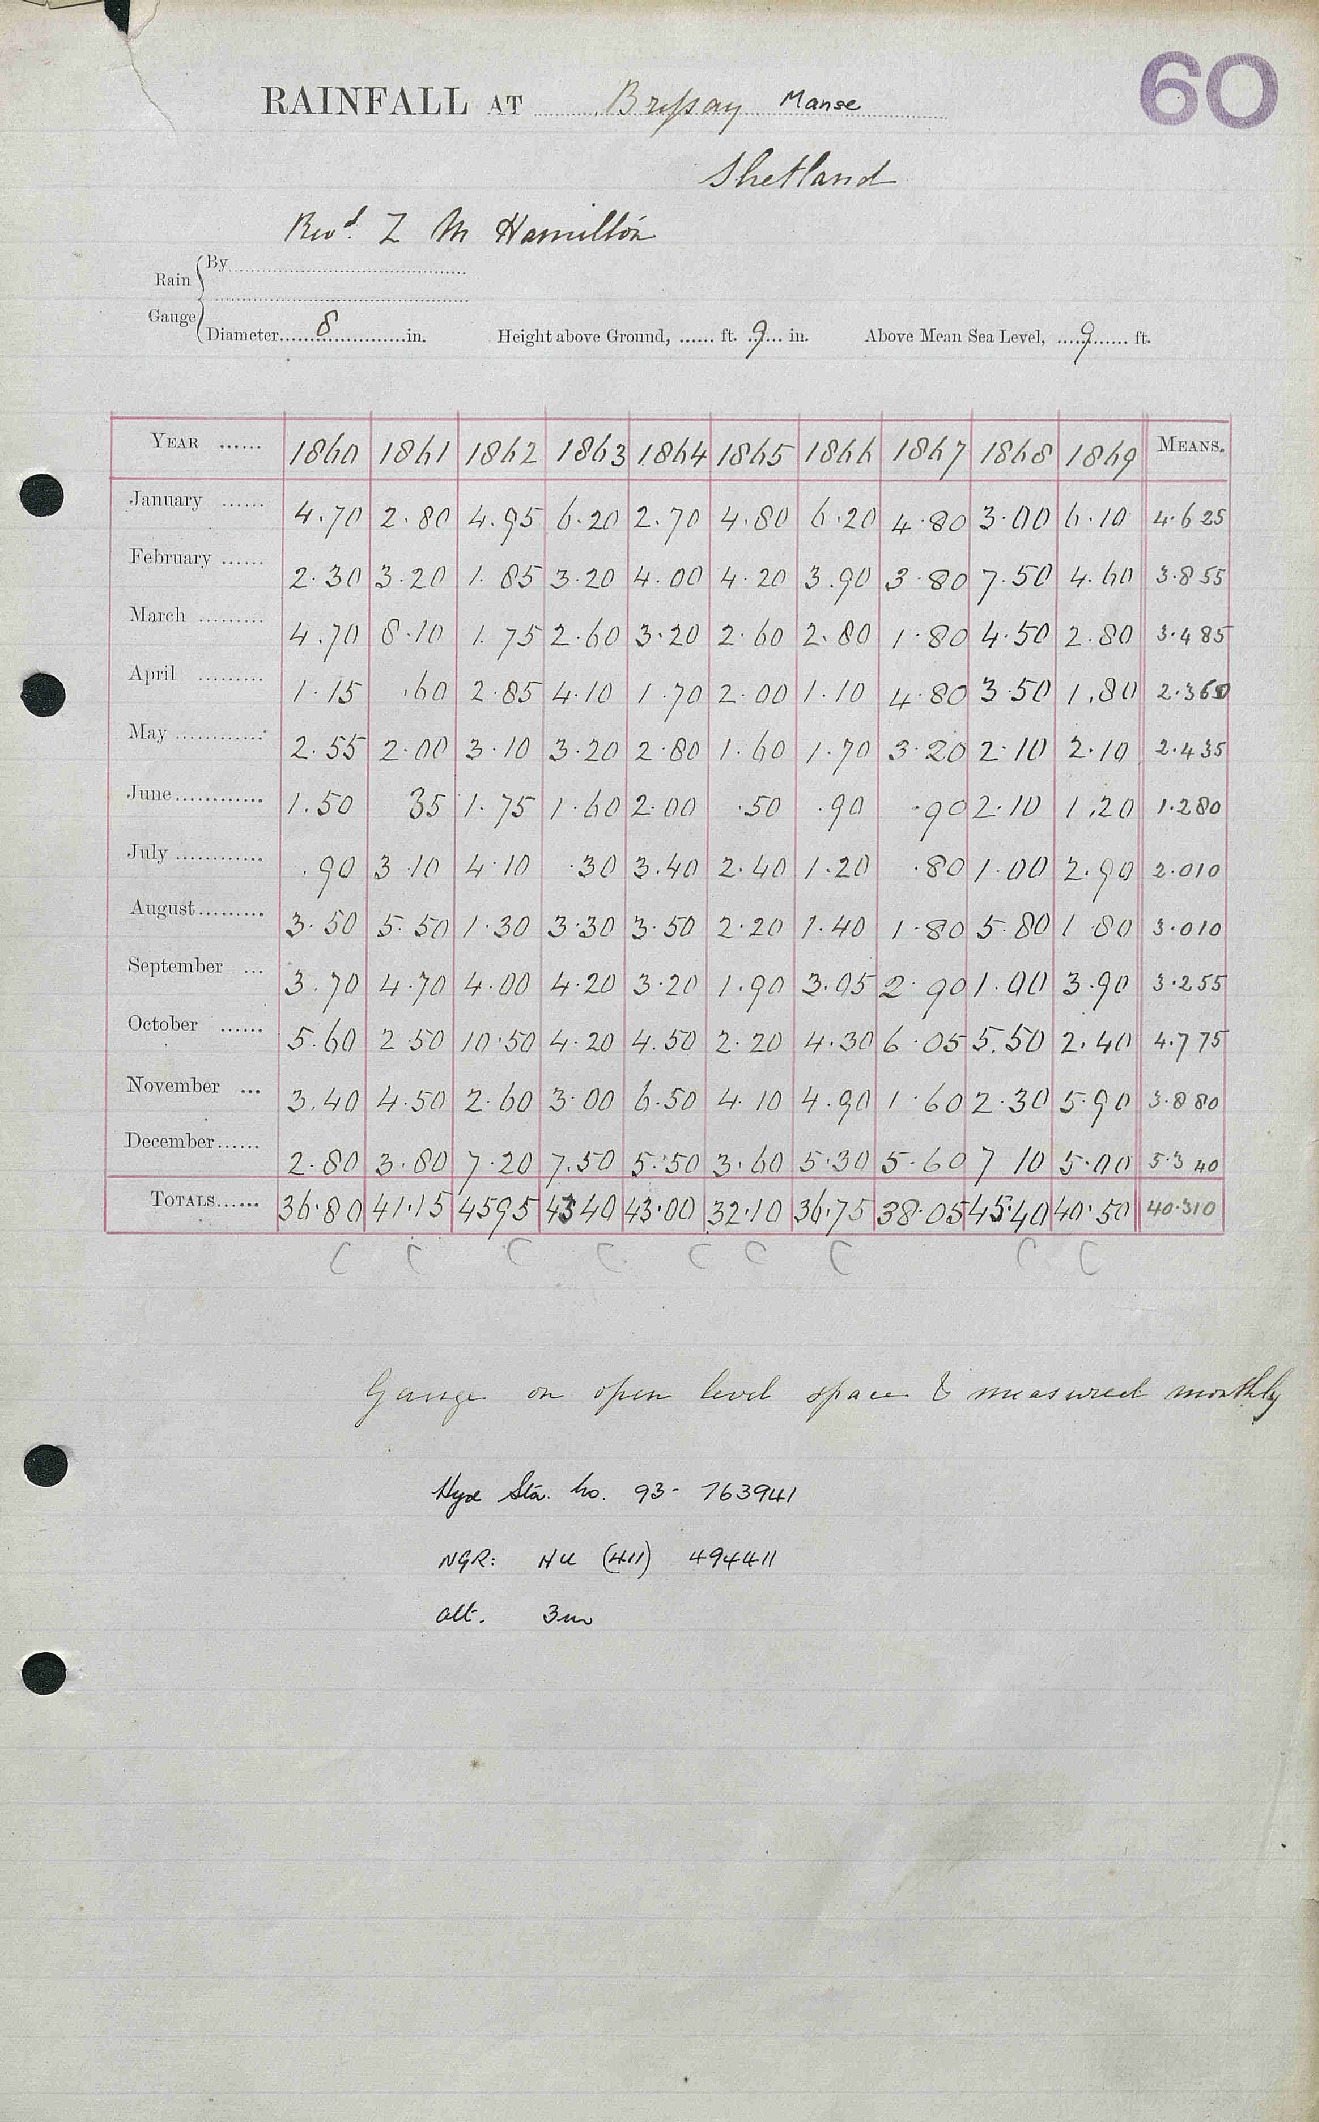 60
RAINFALL AT Bressay Manse
Shetland
Revd. Z M Hamilton
Rain Gauge { By
Diameter 8 in. Height above Ground, ...... ft. 9 in. Above Mean Sea Level, 9 ft.
YEAR ...... 1860 1861 1862 1863 1864 1865 1866 1867 1868 1869 MEANS.
January ...... 4.70 2.80 4.95 6.20 2.70 4.80 6.20 4.80 3.00 6.10 4.625
February ...... 2.30 3.20 1.85 3.20 4.00 4.20 3.90 3.80 7.50 4.60 3.855
March ......... 4.70 8.10 1.75 2.60 3.20 2.60 2.80 1.80 4.50 2.80 3.485
April ......... 1.15 .60 2.85 4.10 1.70 2.00 1.10 4.80 3.50 1.80 2.360
May ............ 2.55 2.00 3.10 3.20 2.80 1.60 1.70 3.20 2.10 2.10 2.435
June............ 1.50 35 1.75 1.60 2.00 .50 .90 .90 2.10 1.20 1.280
July ............ .90 3.10 4.10 .30 3.40 2.40 1.20 .80 1.00 2.90 2.010
August......... 3.50 5.50 1.30 3.30 3.50 2.20 1.40 1.80 5.80 1.80 3.010
September ... 3.70 4.70 4.00 4.20 3.20 1.90 3.05 2.90 1.00 3.90 3.255
October ...... 5.60 2 50 10.50 4.20 4.50 2.20 4.30 6.05 5.50 2.40 4.775
November ... 3.40 4.50 2.60 3.00 6.50 4.10 4.90 1.60 2.30 5.90 3.880
December...... 2.80 3.80 7.20 7.50 5.50 3.60 5.30 5.60 7 10 5.00 5.340
TOTALS...... 36.80 41.15 4595 43 40 43.00 32.10 36.75 38.05 45.40 40.50 40.310
C C C C C C C C C
Gauge on open level space & measured monthly
Hyd Sta. No. 93- 763941
NGR: HU (411) 494411
alt. 3m